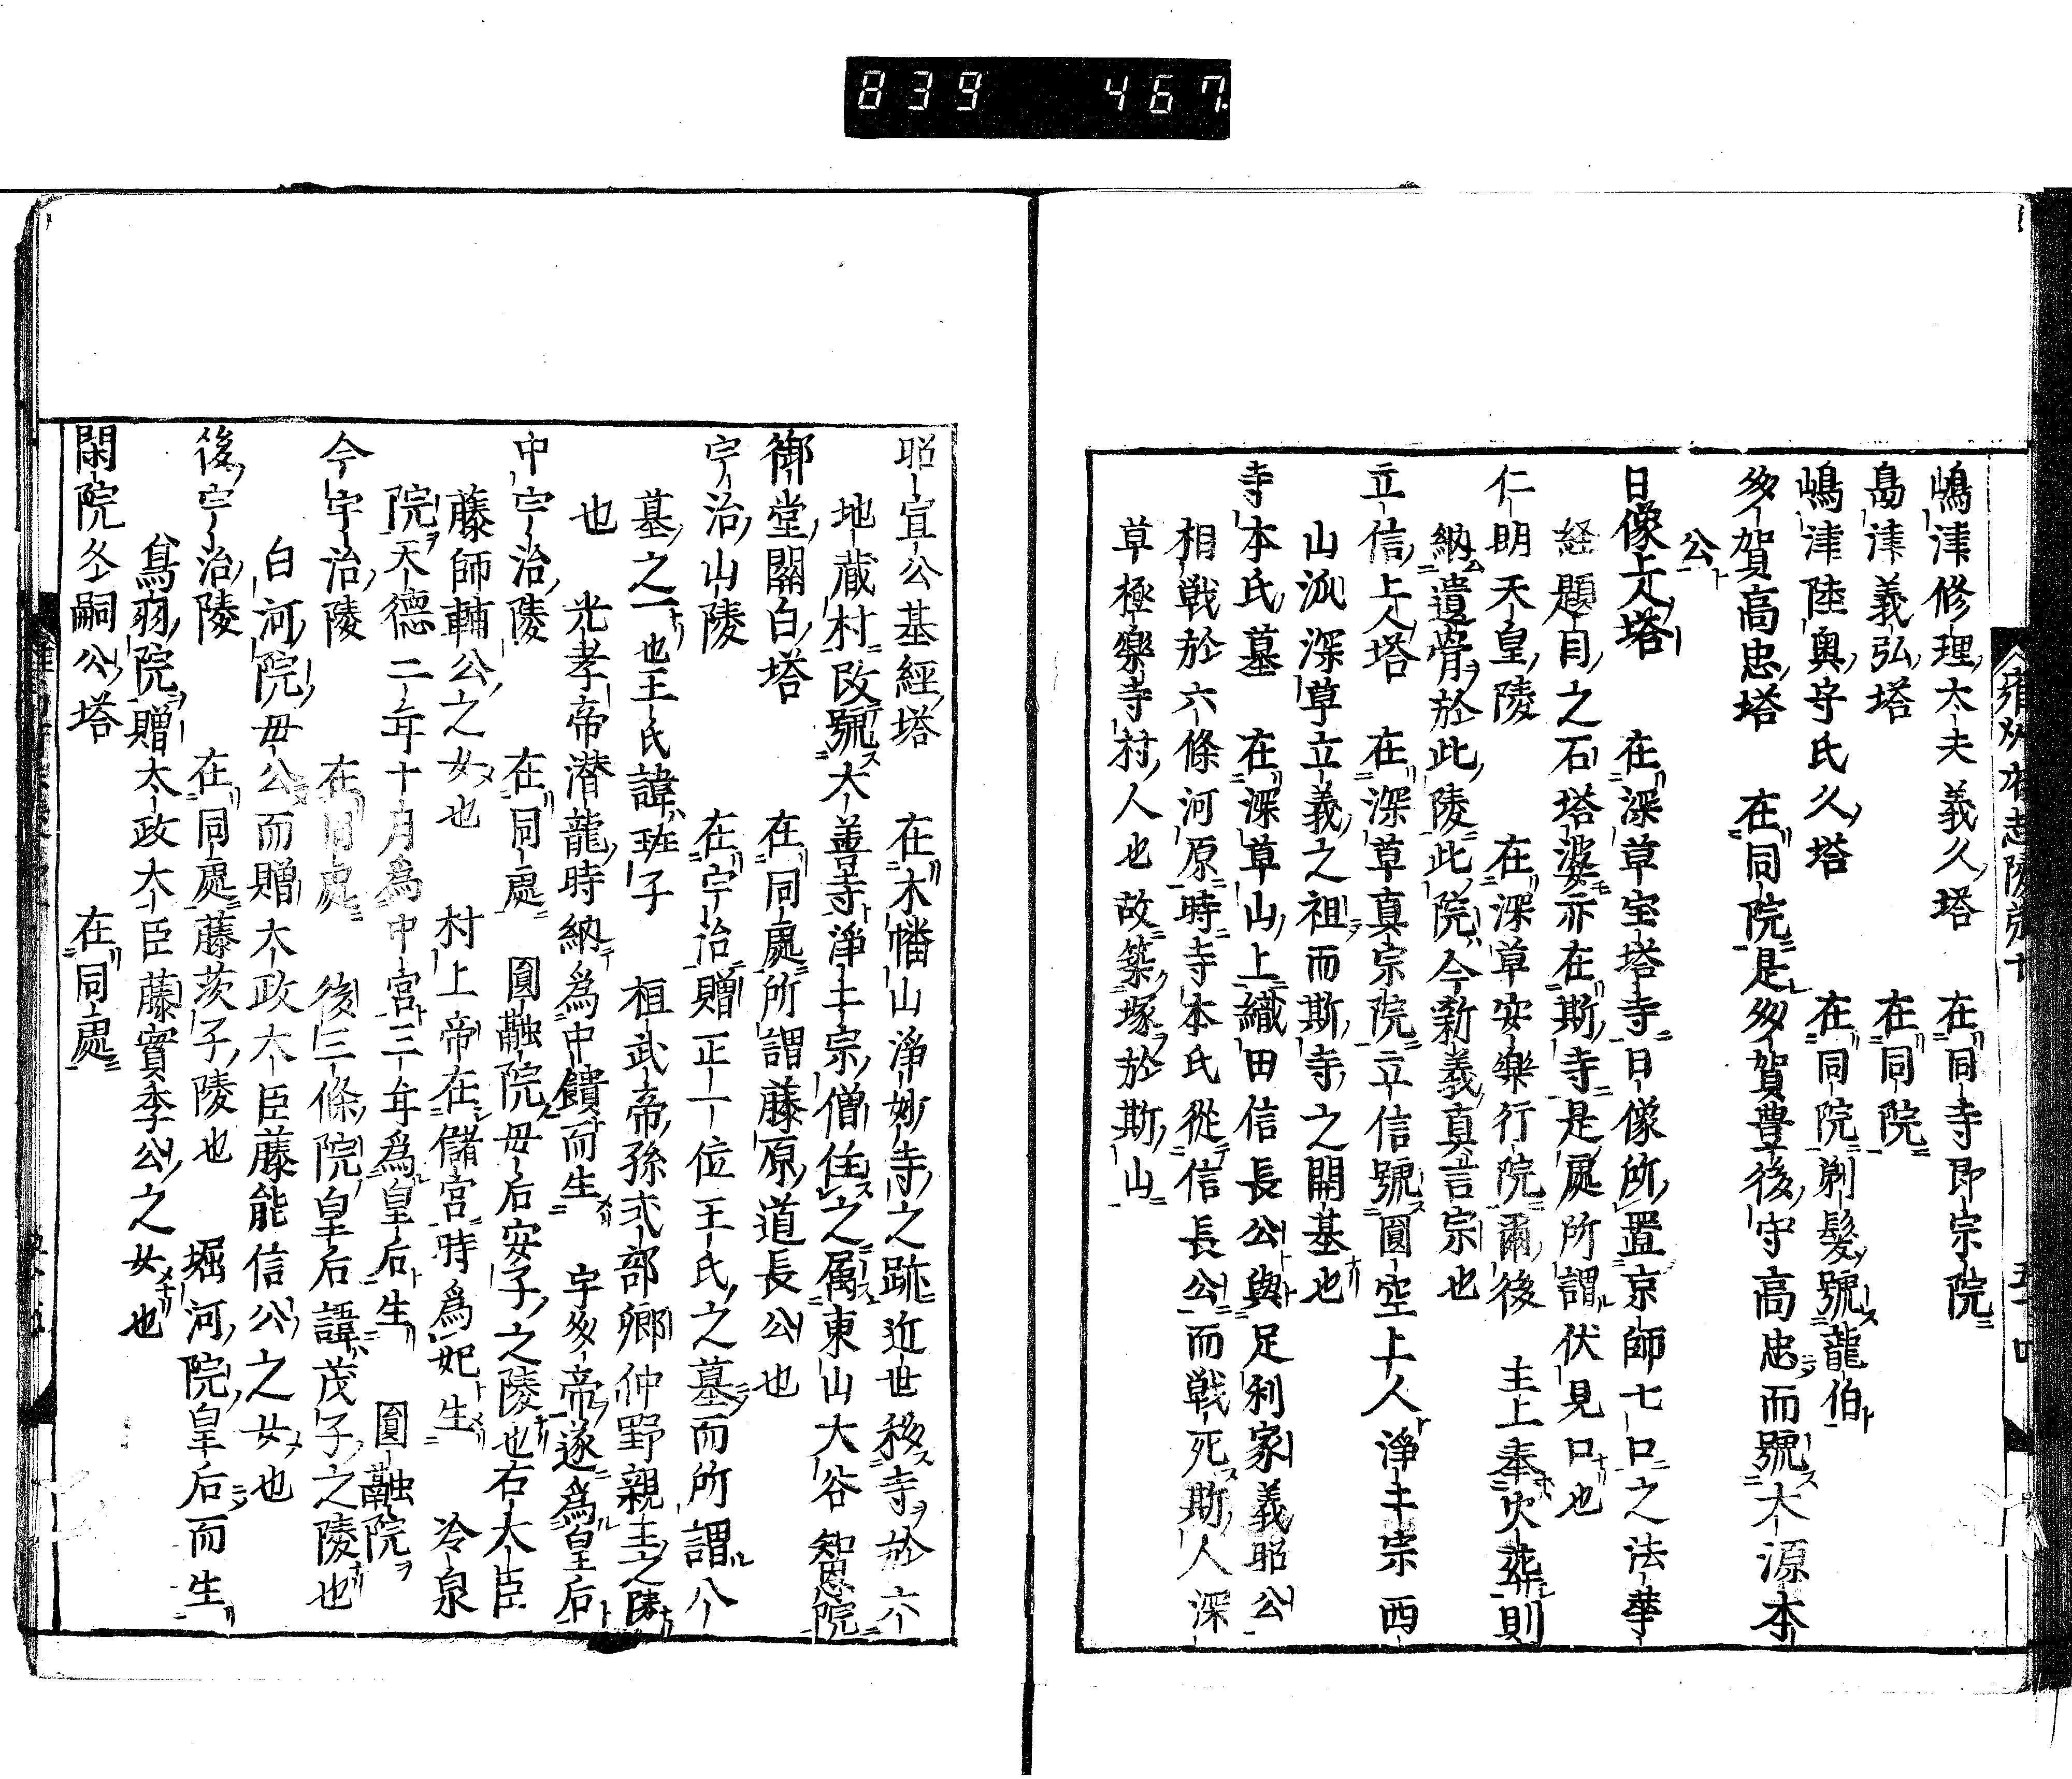 839 467
雍州府志陵墓十
嶋津修理太夫義久塔 在同寺即宗院
島津義弘塔 在同院
嶋津陸奥守氏久塔 在同院剃髮號龍伯
多賀高忠塔 在同院是多賀豊後守高忠而號大源本
公
日像上人塔 在深草宝塔寺日像所置京師七口之法華
経題目之石塔婆亦在斯寺是處所謂伏見口也
仁明天皇陵 在深草安樂行院爾後 主上奉火葬則
納遺骨於此陵此院今新義真言宗也
立信上人塔 在深草真宗院立信號圓空上人淨土宗西
山派深草立義之祖而斯寺之開基也
寺本氏墓 在深草山上織田信長公與足利家義昭公
相戦於六條河原時寺本氏從信長公而戦死斯人深
草極樂寺村人也故築塚於斯山
昭宣公基經塔 在木幡山淨妙寺之跡近世移寺於六
地藏村改號大善寺淨土宗僧住之属東山大谷智恩院
御堂關白塔 在同處所謂藤原道長公也
宇治山陵 在宇治贈正一位王氏之墓而所謂八
墓之一也王氏諱班子 桓武帝孫式部卿仲野親王之陵
也 光孝帝潜龍時納爲中饋而生 宇多帝遂爲皇后
中宇治陵 在同處 圓融院毋后安子之陵也右大臣
藤師輔公之女也 村上帝在儲宮時爲妃生 冷泉
院天德二年十月爲中宮三年爲皇后生 圓融院
今宇治陵 在同處 後三條院皇后諱茂子之陵也
白河院毋公而贈太政大臣藤能信公之女也
後宇治陵 在同處藤茨子陵也 堀河院皇后而生
鳥羽院贈太政大臣藤實季公之女也
閑院冬嗣公塔 在同處